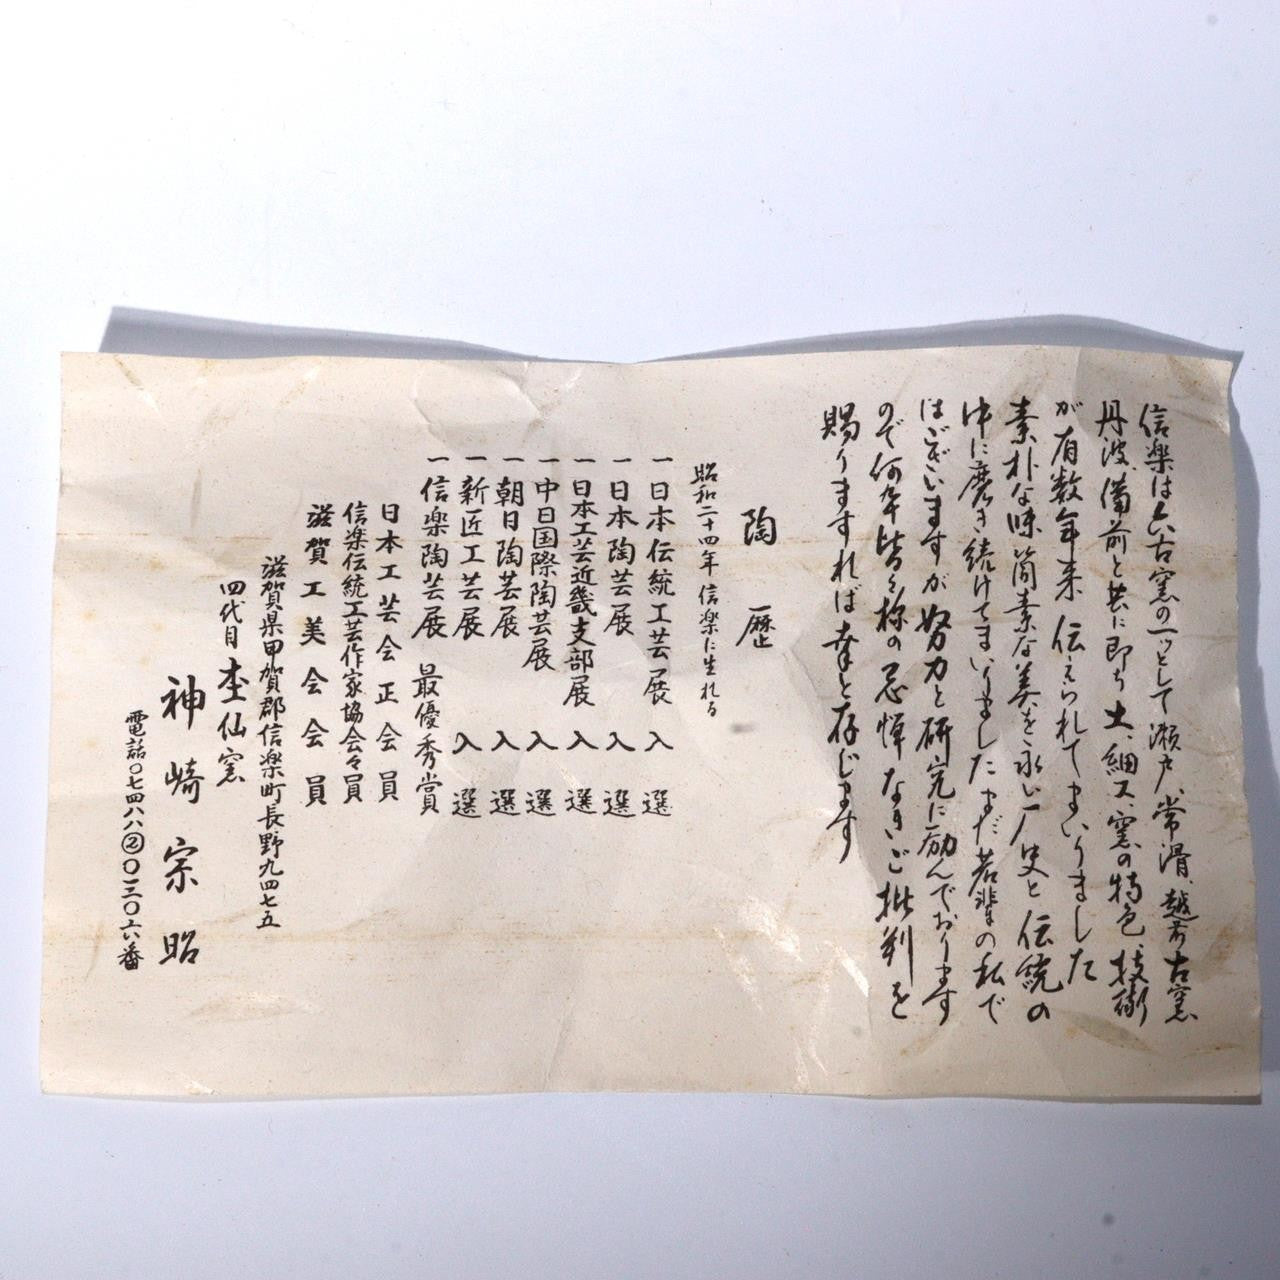 信楽は六古窯の一ッとして瀬戸、常滑、越前古窯
丹波、備前と共に即ち土、細工、窯の特色、技術
が有数年来伝えられてまいりました
素朴な味、簡素な美を永い歴史と伝統の
中に磨き続けてまいりましたまだ若輩の私で
はございますが努力と研究に励んでおります
ので何卒皆々様の忌憚なきご批判を
賜りますれば幸と存じます
陶歴
昭和二十四年信楽に生れる
一日本伝統工芸展 入選
一日本陶芸展 入選
一日本工芸近畿支部展 入選
一中日国際陶芸展 入選
一朝日陶芸展 入選
一新匠工芸展 入選
一信楽陶芸展 最優秀賞
日本工芸会正会員
信楽伝統工芸作家協会々員
滋賀工美会会員
滋賀県甲賀郡信楽町長野九四七五
四代目 杢仙窯
神崎宗昭
電話〇七四八八②〇一三〇六番